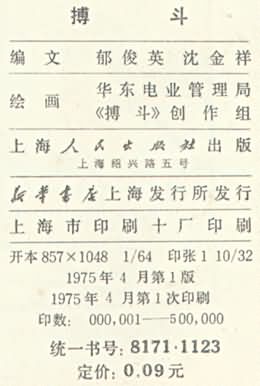 搏斗
编文 郁俊英 沈金祥
绘画 华东电业管理局
《搏斗》创作组
上海人民出版社出版
上海绍兴路五号
新华书店上海发行所发行
上海市印刷十厂印刷
开本 857×1048 1/64 印张 1 10/32
1975年 4 月第1版
1975年 4 月第1次印刷
印数：000,001——500,000
统一书号：8171·1123
定价：0.09元